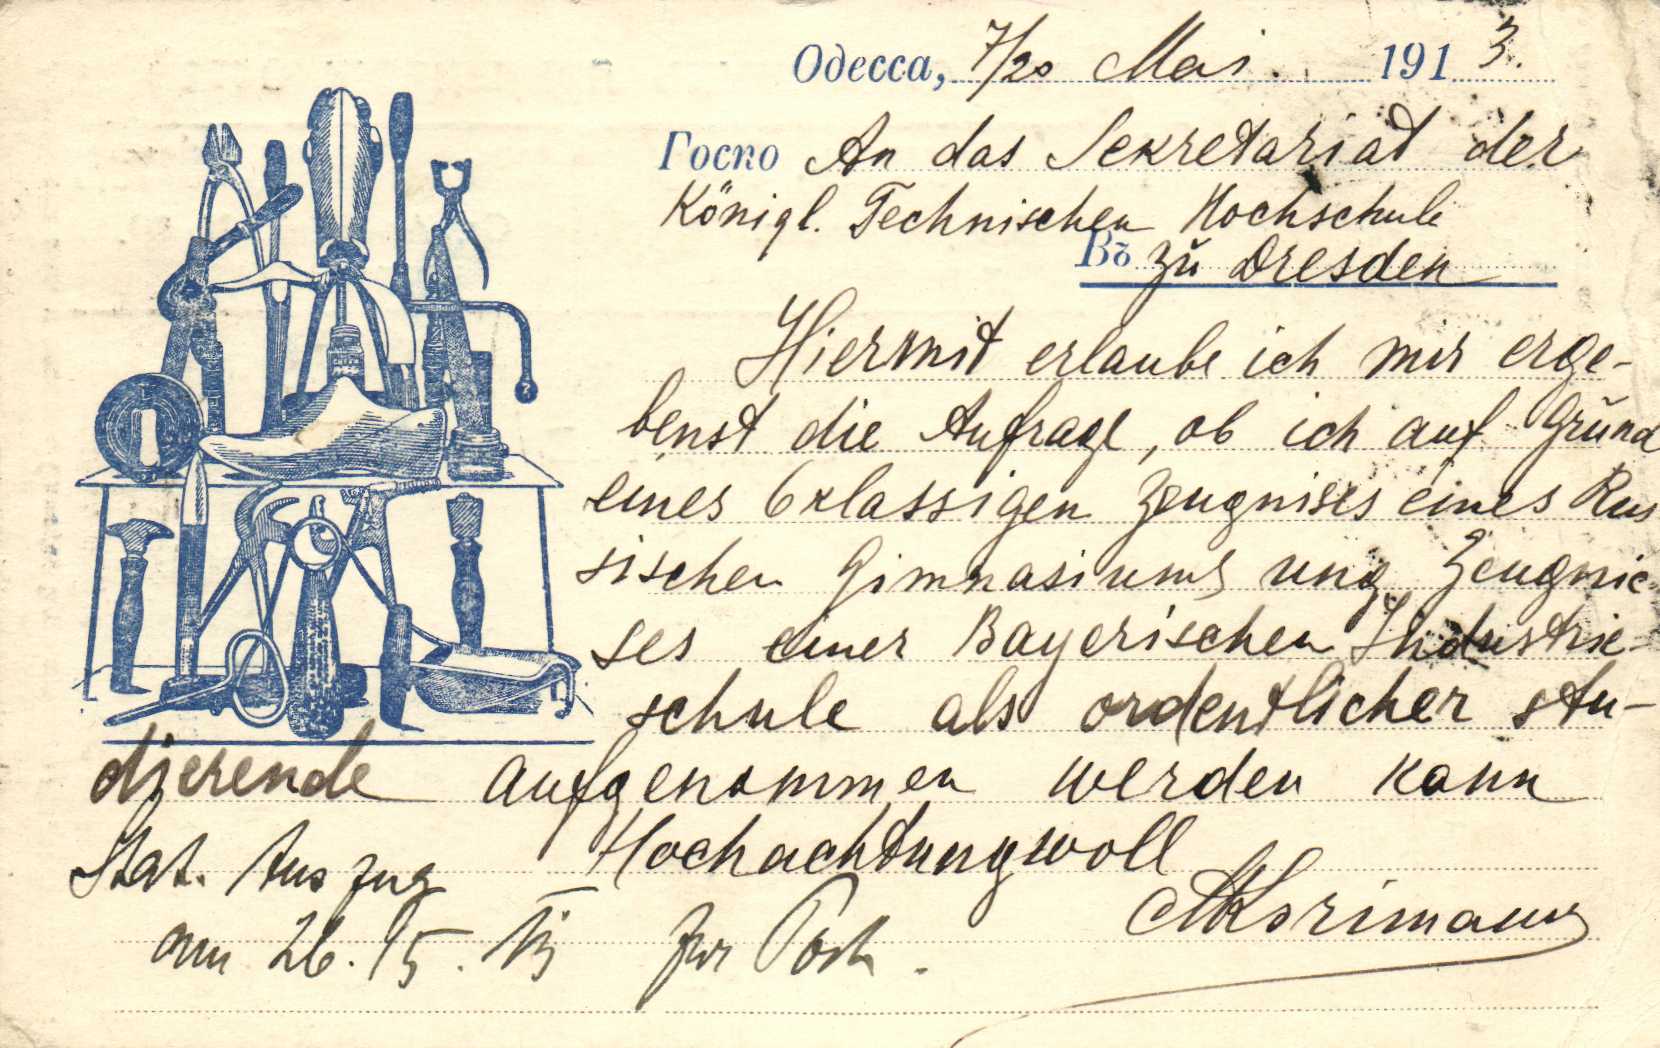 Одесса, 7/20 Mai. 1913.
Госпо An das Sekretariat der
Königl. Technischen Hochschule
Въ zŭ Dresden
Hiermit erlaube ich mir erge-
benst die Anfrage, ob ich auf Grŭnd
eines 6klassigen Zeugnises eines Rus
sischen Gimnasiums ung Zeugnic-
ses einer Bayerischen Industrie-
schule als ordentlicher stu-
dierende aufgenommen werden kann
Hochachtungwoll
Stat. Auszug
am 26./5. 13 zur Post.